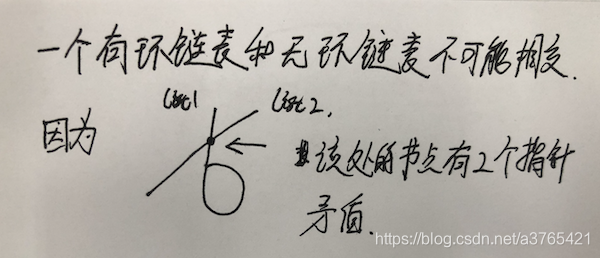 一个有环链表和无环链表不可能相交.
list1 list2.
因为 该处的节点有2个指针
矛盾.
https://blog.csdn.net/a3765421